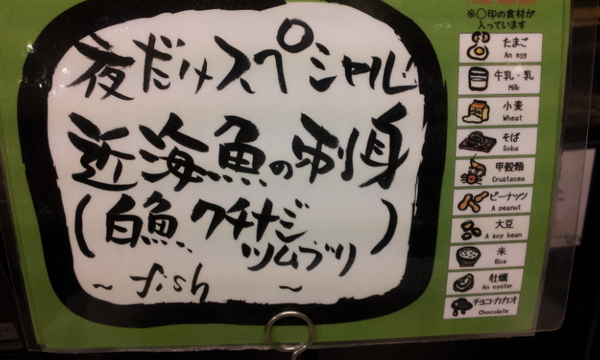 夜だけスペシャル
近海魚の刺身
(白魚、クチナジ
ツムブリ)
~ fish ~
※○印の食材が
入っています
たまご
An egg
牛乳・乳
Milk
小麦
Wheat
そば
Soba
甲殻類
Crustacea
ピーナッツ
A peanut
大豆
A soy bean
米
Rice
牡蠣
An oyster
チョコ・カカオ
Chocolate